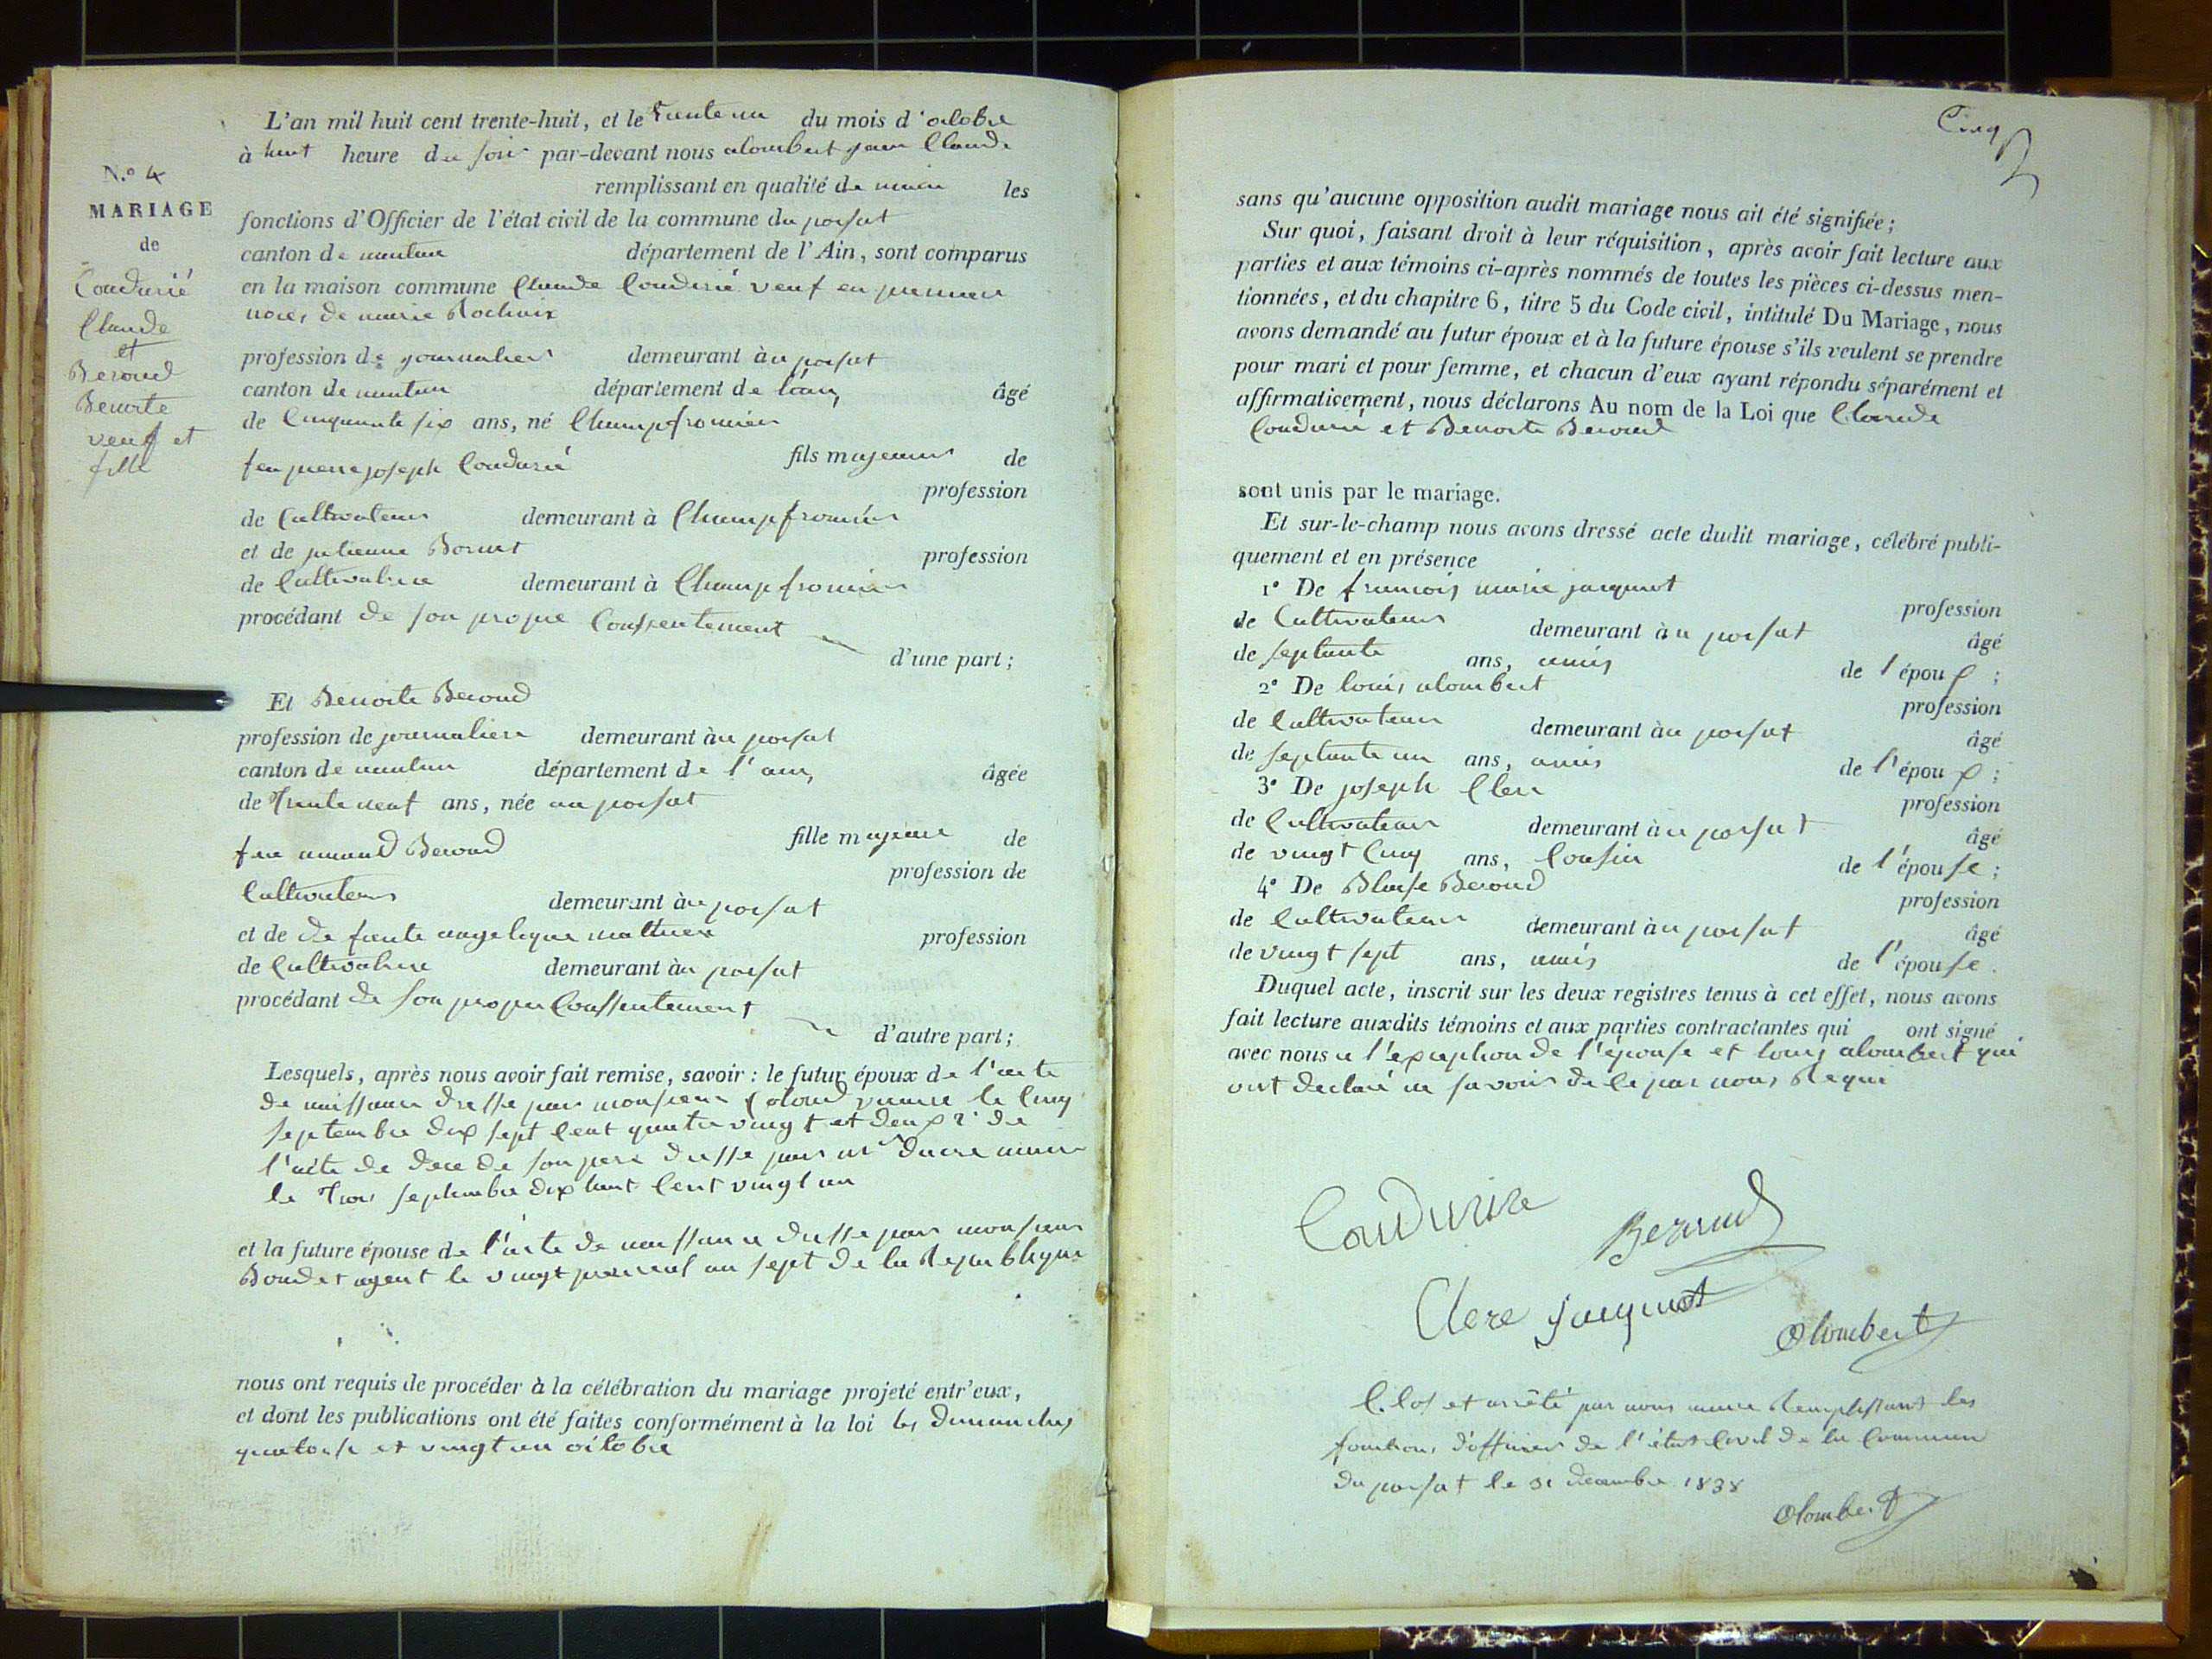 L'an mil huit cent trente-huit, et le trente un du mois d'octobre
à huit heure du soir par-devant nous alombert jean Claude
remplissant en qualité de maire les
fonctions d'Officier de l'état civil de la commune du poisat
canton de nantua département de l'Ain, sont comparus
en la maison commune Claude Coudurié veuf en premier
noces de marie Rochaix
profession de journalier demeurant àu poisat
canton de nantua département de l'ain, âgé
de Cinquante six ans, né Champfromier
fils majeure de
feu pierre joseph Coudurié
profession
de Cultivateur demeurant à Champfromier
et de julienne Bornet profession
de Cultivatrice demeurant à Champfromier
procédant de son propre Conssentement
d'une part;
N.o 4
MARIAGE
de
Coudurié
Claude
et
Beroud
Benoite
veuf et
fille
Et Benoite Beroud
profession de journaliere demeurant àu poisat
canton de nantua département de l'ain, âgée
de Trente neuf ans, née au poisat
fille majeure de
feu amand Beroud
profession de
Cultivateur demeurant àu poisat
et de de funte angelique mathieu profession
de Cultivatrice demeurant àu poisat
procédant de son propre Conssentement
d'autre part;
Lesquels, après nous avoir fait remise, savoir: le futur époux de l'acte
de naissance dresse par monsieur le Cinq
septembre dix sept Cent quatre vingt et deux 2° de
l'acte de dece de son pere dresse par mr Ducre maire
le Trois septembre dix huit Cent vingt un
et la future épouse de l'acte de naissance dresse par monsieur
Boudet agent le vingt prairial an sept de la Republique
nous ont requis de procéder à la célébration du mariage projeté entr'eux,
et dont les publications ont été faites conformément à la loi les dimanches
quatorse et vingt un octobre
Cinq
sans qu'aucune opposition audit mariage nous ait été signifiée;
Sur quoi, faisant droit à leur réquisition, après avoir fait lecture aux
parties et aux témoins ci-après nommés de toutes les pièces ci-dessus men-
tionnées, et du chapitre 6, titre 5 du Code civil, intitulé Du Mariage, nous
avons demandé au futur époux et à la future épouse s'ils veulent se prendre
pour mari et pour femme, et chacun d'eux ayant répondu séparément et
affirmativement, nous déclarons Au nom de la Loi que Claude
Coudurié et Benoite Beroud
sont unis par le mariage.
Et sur-le-champ nous avons dressé acte dudit mariage, célébré publi-
quement et en présence
1° De francois marie jacquinot
profession
de Cultivateur demeurant àu poisat âgé
de septante ans, amis de l'époux;
2° De louis alombert
profession
de Cultivateur demeurant àu poisat âgé
de septante un ans, amis de l'époux;
3° De joseph Clere
profession
de Cultivateur demeurant àu poisat âgé
de vingt Cinq ans, Cousin de l'épouse;
4° De Blaise Beroud
profession
de Cultivateur demeurant àu poisat âgé
de vingt sept ans, amis de l'épouse.
Duquel acte, inscrit sur les deux registres tenus à cet effet, nous avons
fait lecture auxdits témoins et aux parties contractantes qui ont signé
avec nous a l'exception de l'épouse et louis alombert qui
ont declaré ne savoir de le par nous Requi
Coudurier
Beroud
Clere jacquinot
Olombert
Clos et arrêté par nous maire Remplissant les
fonctions d'officier de l'état Civil de la Commune
du poisat le 31 decembre 1838
Olombert